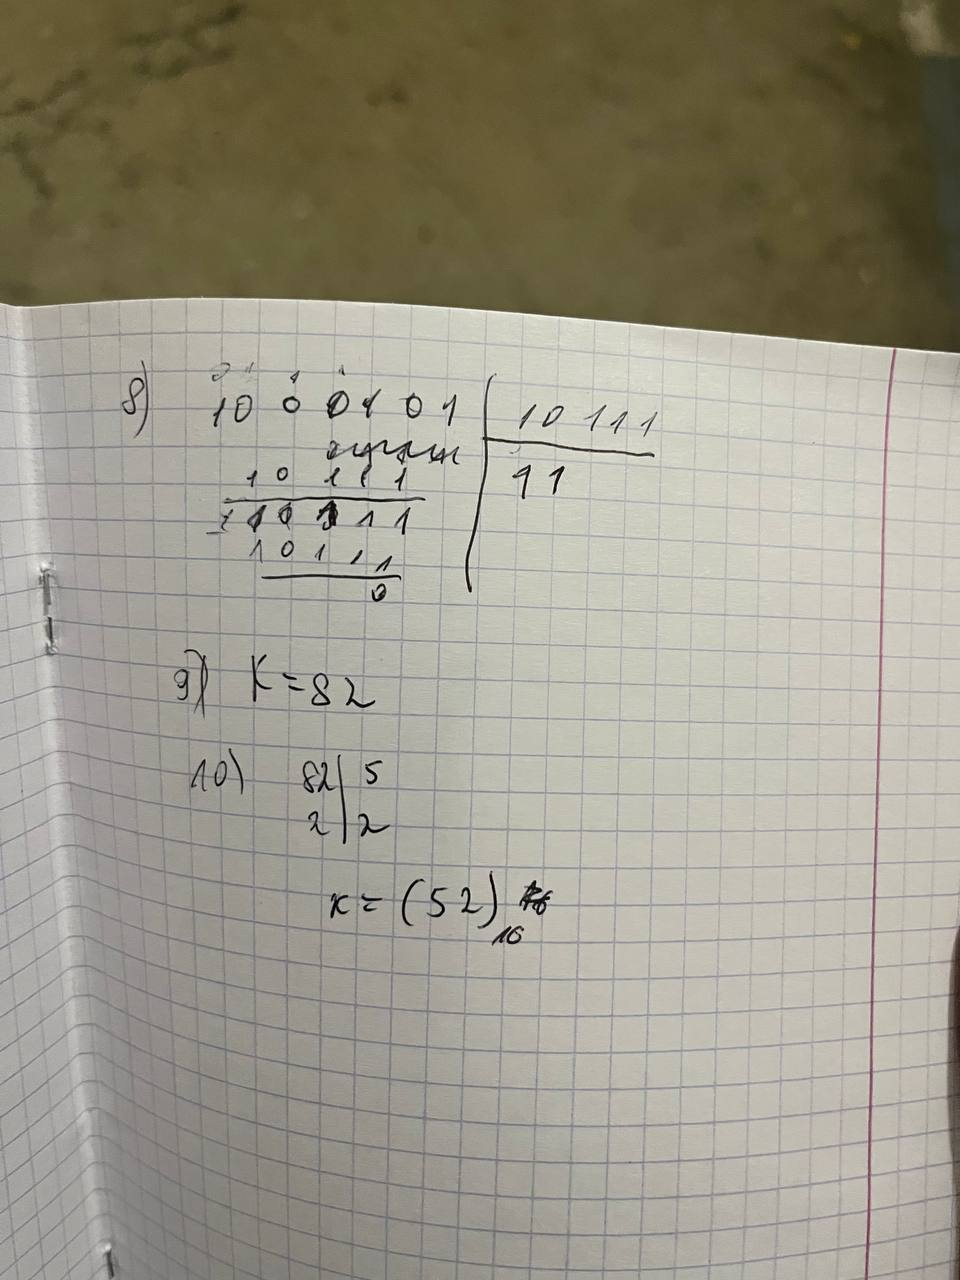 8) 1000101 | 10111
10111 | 11
10111
10111
0
9) K=82
10) 82 | 5
2 | 2
K = (52)16